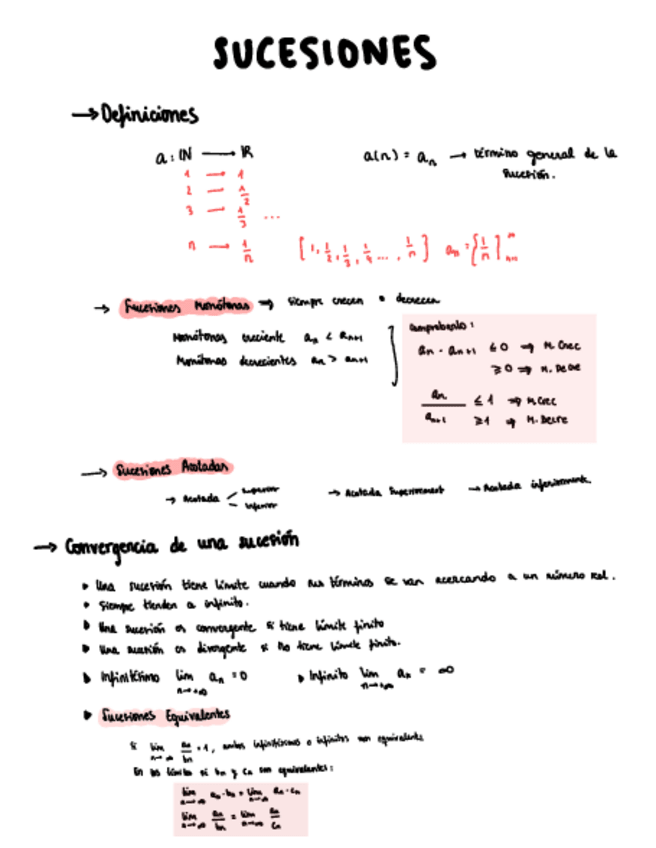 SUCESIONES
→ Definiciones
a : ℕ → ℝ
a(n) = aₙ → término general de la sucesión.
1 → 1
2 → 1/2
3 → 1/3 ...
n → 1/n
[1, 1/2, 1/3, 1/4 ..., 1/n] aₙ = {1/n}
→ Sucesiones Monótonas ⇒ siempre crecen o decrecen
Monótonas creciente aₙ < aₙ₊₁
Monótonas decrecientes aₙ > aₙ₊₁
comprobarlo:
aₙ - aₙ₊₁ ≤ 0 ⇒ M. Crec
≥ 0 ⇒ M. Decre
aₙ / aₙ₊₁ ≤ 1 ⇒ M. Crec
≥ 1 ⇒ M. Decre
→ Sucesiones Acotadas
→ Acotada superior inferior
→ Acotada superiorment → Acotada inferiorment.
→ Convergencia de una sucesión
▸ Una sucesión tiene límite cuando sus términos se van acercando a un número real.
▸ Siempre tienden a infinito.
▸ Una sucesión es convergente si tiene límite finito
▸ Una sucesión es divergente si no tiene límite finito.
▸ Infinitésimo lim n→+∞ aₙ = 0
▸ Infinito lim n→+∞ aₙ = ∞
▸ Sucesiones Equivalentes
Si lim n→∞ aₙ/bₙ = 1, ambos infinitésimos o infinitos son equivalentes
En los límites si bₙ y cₙ son equivalentes:
lim n→∞ aₙ · bₙ = lim n→∞ aₙ · cₙ
lim n→∞ aₙ/bₙ = lim n→∞ aₙ/cₙ